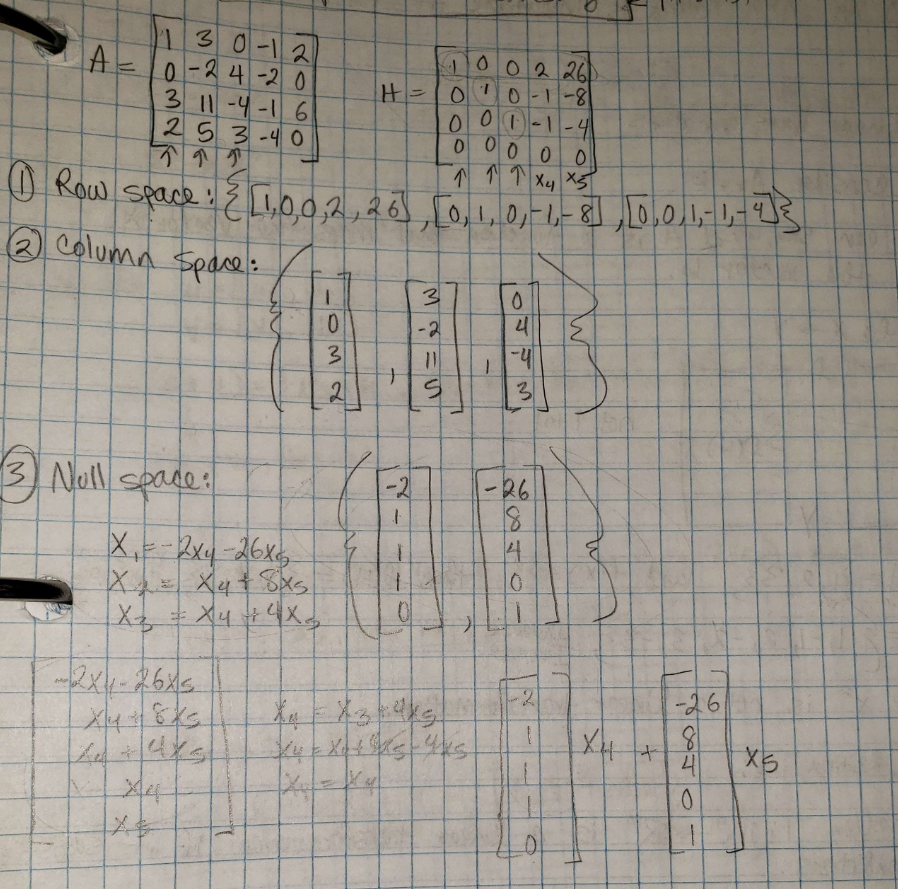 A = [1 3 0 -1 2
0 -2 4 -2 0
3 11 -4 -1 6
2 5 3 -4 0]
↑ ↑ ↑
H = [1 0 0 2 26
0 1 0 -1 -8
0 0 1 -1 -4
0 0 0 0 0]
↑ ↑ ↑ x4 x5
① Row space: {[1,0,0,2,26], [0,1,0,-1,-8], [0,0,1,-1,-4]}
② Column Space:
{[1 0 3 2], [3 -2 11 5], [0 4 -4 3]}
③ Null space:
{[-2 1 1 1 0], [-26 8 4 0 1]}
x1 = -2x4 - 26x5
x2 = x4 + 8x5
x3 = x4 + 4x5
[-2x4 - 26x5
x4 + 8x5
x4 + 4x5
x4
x5]
x4 = x3 + 4x5
x4 = x4 + 4x5 - 4x5
x4 = x4
[-2 1 1 1 0] x4 + [-26 8 4 0 1] x5